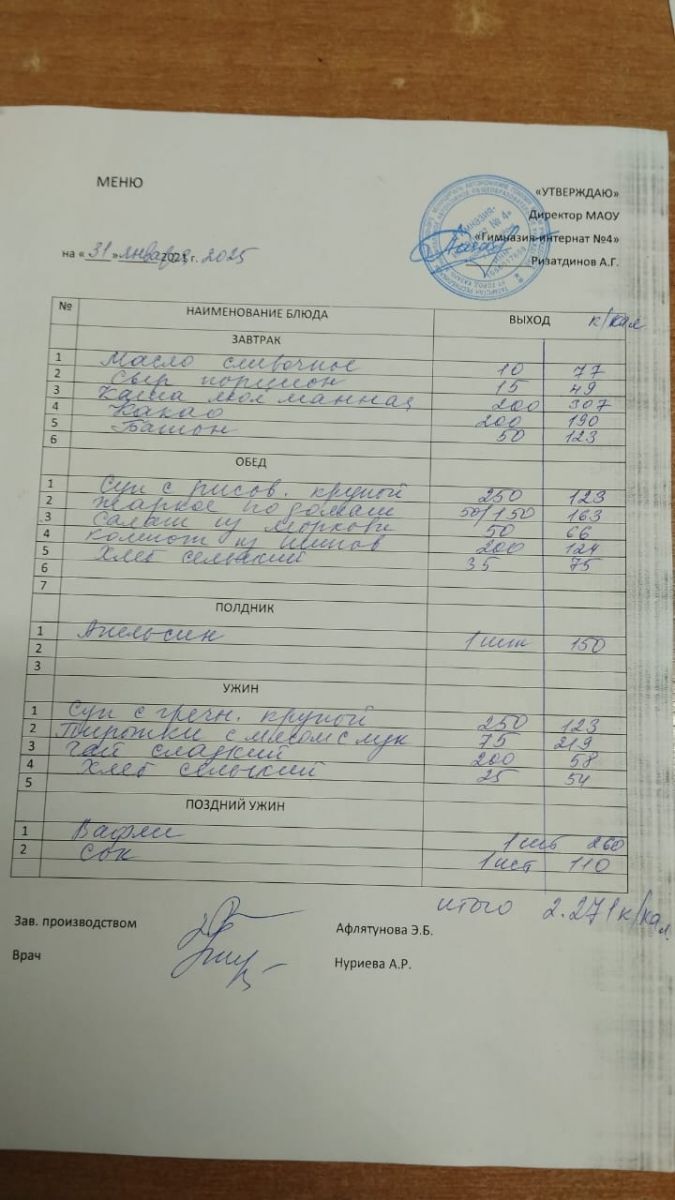 МЕНЮ
«УТВЕРЖДАЮ»
Директор МАОУ
«Гимназия-интернат №4»
Ризатдинов А.Г.
на «31» января 2021 г. 2025
№ НАИМЕНОВАНИЕ БЛЮДА ВЫХОД к/кал
ЗАВТРАК
1 Масло сливочное 10 77
2 Сыр порцион 15 49
3 Каша мол манная 200 307
4 Какао 200 190
5 Батон 50 123
6
ОБЕД
1 Суп с рисов. крупой 250 123
2 Жаркое по домаш 50/150 163
3 Салат из моркови 50 66
4 компот из 200 124
5 Хлеб сельский 35 75
6
7
ПОЛДНИК
1 Апельсин 1 шт 150
2
3
УЖИН
1 Суп с гречн. крупой 250 123
2 Пирожки с мясом с лук 75 219
3 Чай сладкий 200 58
4 Хлеб сельский 25 54
5
ПОЗДНИЙ УЖИН
1 Вафли 1 шт 260
2 Сок 1 шт 110
итого 2.271 к/кал.
Зав. производством Афлятунова Э.Б.
Врач Нуриева А.Р.